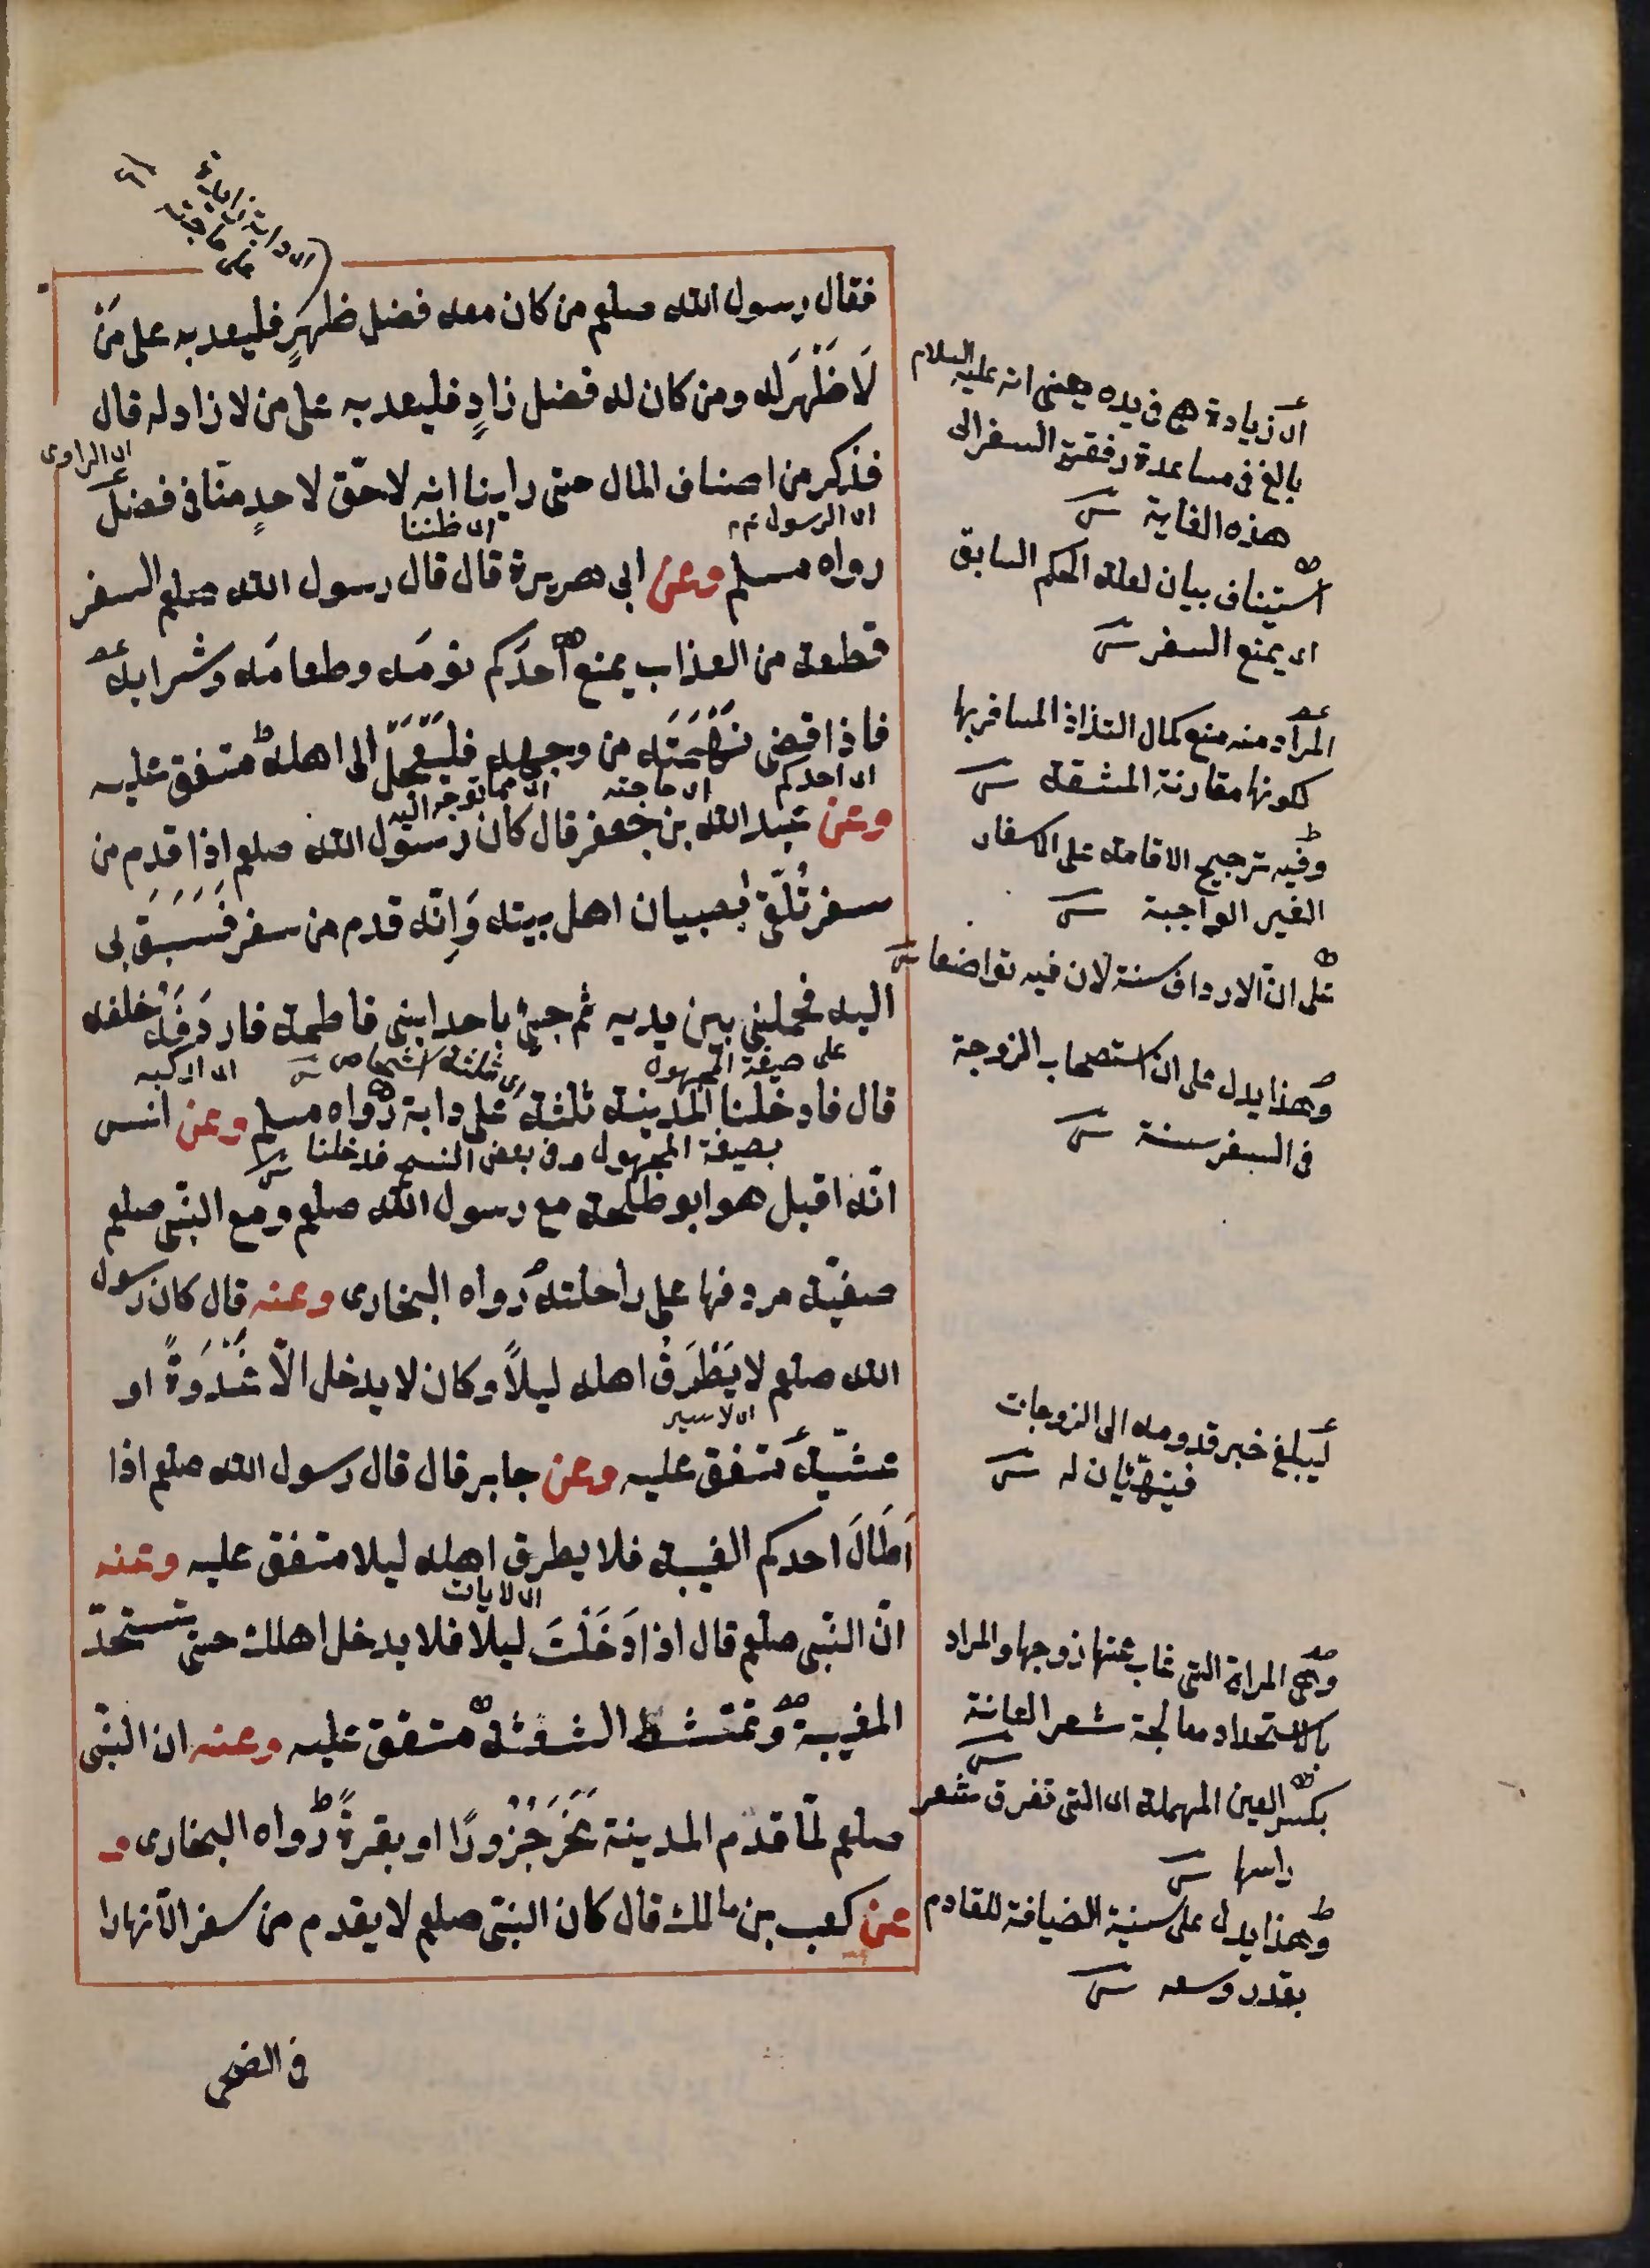 اى دابة زايدة
على حاجته
فقال رسول الله صلعم من كان معه فضل ظهرٍ فليعد به على مَنْ
لَا ظَهْرَ له ومن كان له فضل زادٍ فليعد به على من لا زاد له قال
اى الراوى
فذكر من اصناف المال حتى راينا انه لا حقّ لاحدٍ منّا فى فضل
اى الرسول عم اى ظننا
رواه مسلم وعن ابى هريرة قال قال رسول الله صلعم السفر
قطعة من العذاب يمنع احدَكم نومَه وطعامَه وشرابه
فاذا قضى نَهْمَتَه من وجهه فليُعَجِّل الى اهله متفق عليه
اى احدكم اى حاجته اى مما توجه اليه
وعن عبد الله بن جعفر قال كان رسول الله صلعم اذا قدم من
سفر تُلُقّىَ بصبيان اهل بيته وَاِنّه قدم من سفر فَسَبَقَ بى
اليه فحملنى بين يديه ثم جىء باحد ابنى فاطمة فاردَفَهُ خلفه
على صيغة المجهول اى ثلثة اشخاص اى اركبه
قال فادخلنا المدينة ثلثة على دابة رواه مسلم وعن انس
بصيغة المجهول وفى بعض النسخ فدخلنا
انّه اقبل هو ابو طلحة مع رسول الله صلعم ومع النبّى صلعم
صفيّة مردفها على راحلته رواه البخارى وعنه قال كان رسول
الله صلعم لا يَطْرُقُ اهله ليلاً وكان لا يدخل الّا غُدْوَةً او
اى لا يسير
عشيّة متفق عليه وعن جابر قال قال رسول الله صلعم اذا
اَطَالَ احدكم الغيبة فلا يطرق اهله ليلا متفق عليه وعنه
اى لا يات
انّ النّبى صلعم قال اذا دَخَلْتَ ليلا فلا يدخل اهلك حتى تستحدّ
المغيبة وتمتشط الشعثة متفق عليه وعنه ان النبّى
صلعم لمّا قدم المدينة نَحَرَ جَزُورًا او بقرةً رواه البخارى و
عن كعب بن مالك قال كان النبّى صلعم لا يقدم من سفر الّا نهارا
فى الضحى
اى زيادة هى فى يده يعنى انه عليه السلام
بالغ فى مساعدة رفقة السفر الى
هذه الغاية
استيناف بيان لعلة الحكم السابق
اى يمنع السفر
المراد منه منع كمال التذاذ المسافر بها
لكونها مقارنة المشقة
وفيه ترجيح الاقامة على الاسفار
الغير الواجبة
على انّ الارداف سنة لان فيه تواضعا
وهذا يدل على ان استصحاب الزوجة
فى السفر سنة
ليبلغ خبر قدومه الى الزوجات
فيتهيّان له
وهى المراة التى غاب عنها زوجها والمراد
بالاستحداد معالجة شعر العانة
بكسر العين المهملة اى التى تفرق شعر
راسها
وهذا يدل على سنية الضيافة للقادم
بقدر وسعه